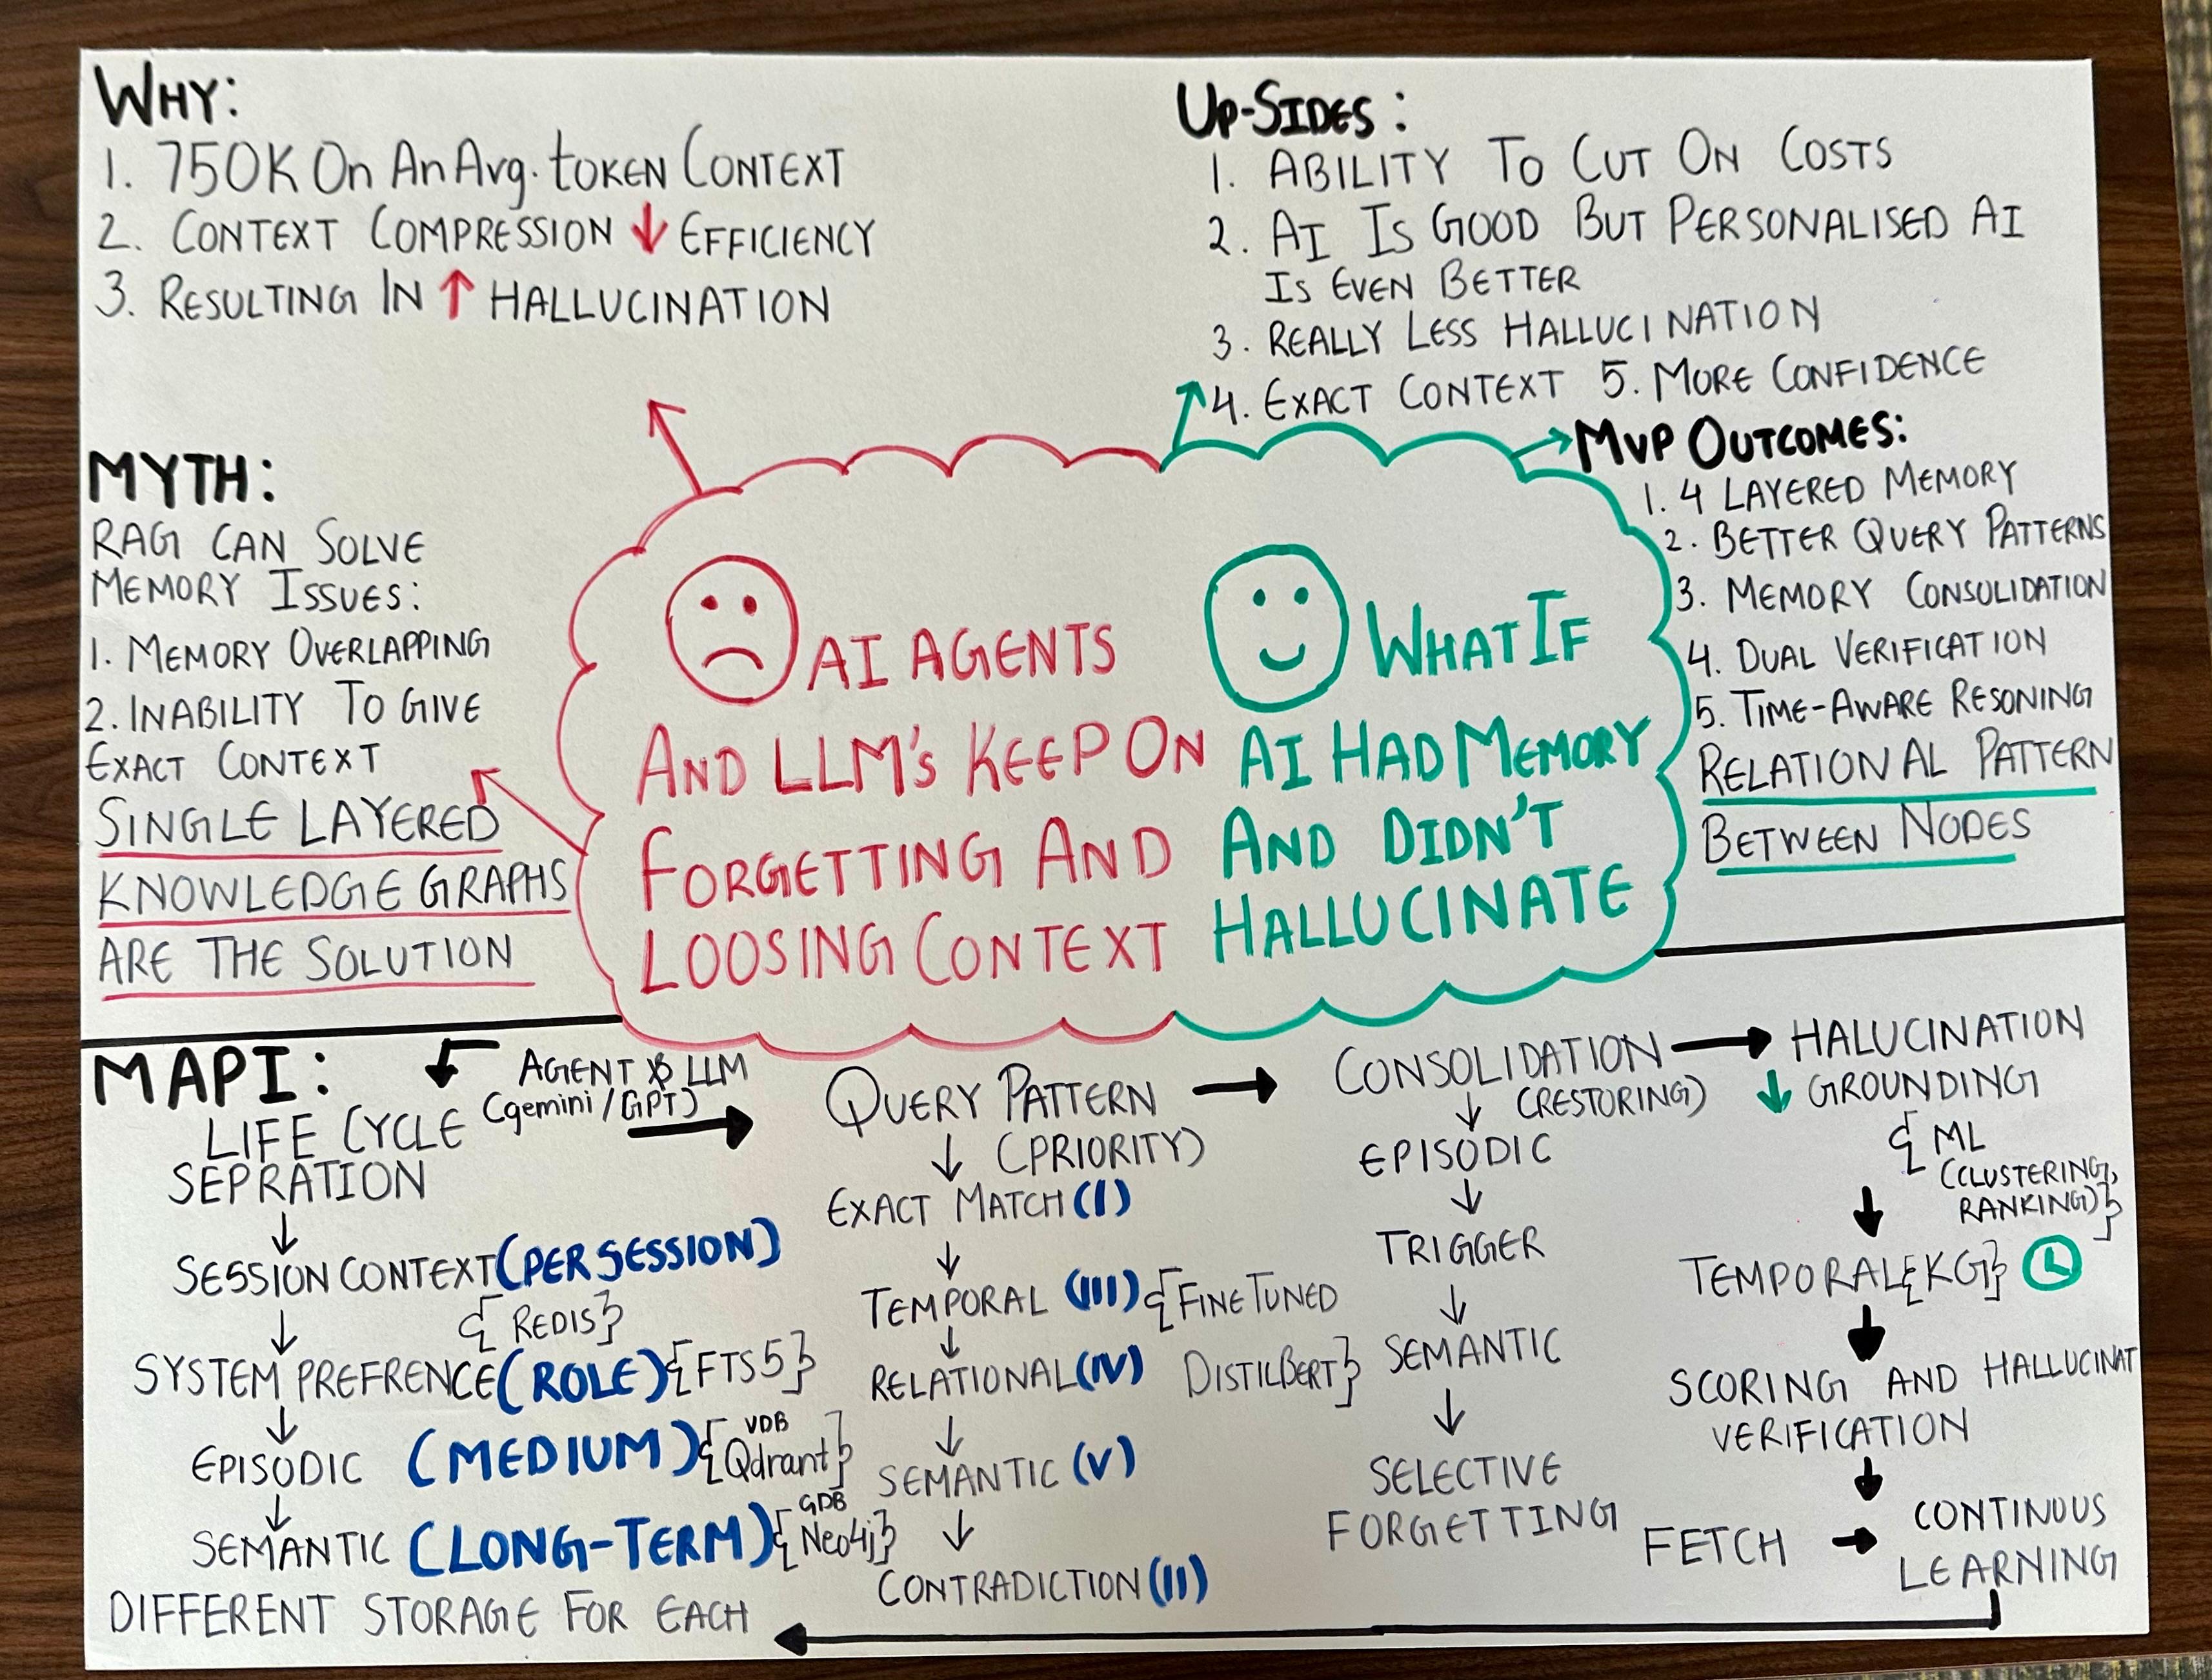 WHY:
1. 750K On An Avg. tOKEN CONTEXT
2. CONTEXT COMPRESSION ↓ EFFICIENCY
3. RESULTING IN ↑ HALLUCINATION
MYTH:
RAG CAN SOLVE
MEMORY ISSUES:
1. MEMORY OVERLAPPING
2. INABILITY TO GIVE
EXACT CONTEXT
SINGLE LAYERED
KNOWLEDGE GRAPHS
ARE THE SOLUTION
UP-SIDES:
1. ABILITY TO CUT ON COSTS
2. AI IS GOOD BUT PERSONALISED AI
IS EVEN BETTER
3. REALLY LESS HALLUCINATION
4. EXACT CONTEXT 5. MORE CONFIDENCE
MVP OUTCOMES:
1. 4 LAYERED MEMORY
2. BETTER QUERY PATTERNS
3. MEMORY CONSOLIDATION
4. DUAL VERIFICATION
5. TIME-AWARE RESONING
RELATIONAL PATTERN
BETWEEN NODES
AI AGENTS
AND LLM's KEEP ON
FORGETTING AND
LOOSING CONTEXT
WHAT IF
AI HAD MEMORY
AND DIDN'T
HALLUCINATE
MAPI:
AGENT & LLM
(gemini/GPT)
LIFE CYCLE
SEPRATION
↓
SESSION CONTEXT (PER SESSION)
{REDIS}
↓
SYSTEM PREFRENCE (ROLE) {FTS5}
↓
EPISODIC (MEDIUM) {VDB
Qdrant}
↓
SEMANTIC (LONG-TERM) {GDB
Neo4j}
DIFFERENT STORAGE FOR EACH
→
QUERY PATTERN
↓ (PRIORITY)
EXACT MATCH (I)
↓
TEMPORAL (III) {FINE TUNED
↓
RELATIONAL (IV) DISTILBERT}
↓
SEMANTIC (V)
↓
CONTRADICTION (II)
→
CONSOLIDATION
↓ (RESTORING)
EPISODIC
↓
TRIGGER
↓
SEMANTIC
↓
SELECTIVE
FORGETTING
→
HALUCINATION
↓ GROUNDING
{ML
(CLUSTERING,
RANKING)}
↓
TEMPORAL {KG}
↓
SCORING AND HALLUCINAT
VERIFICATION
↓
FETCH → CONTINOUS
LEARNING